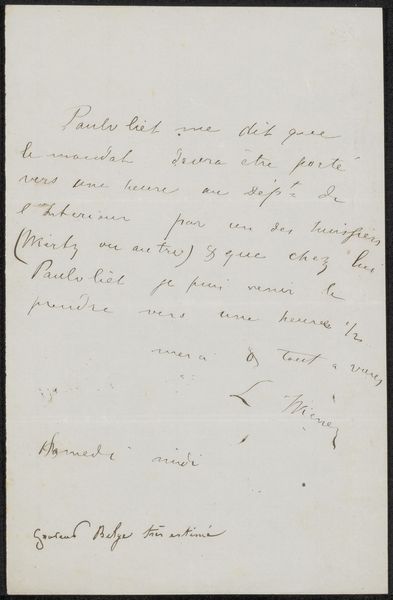 Paul v liet me dit que
le mandat devra être porté
vers une heure au Dépt. de
l'Interieur par un des huissiers
(Wirtz ou autre) & que chez lui
Paul v liet je puis venir le
prendre vers une heure 1/2
merci & tout a vous
L Wiener
Samedi midi
graveur Belge très estimé